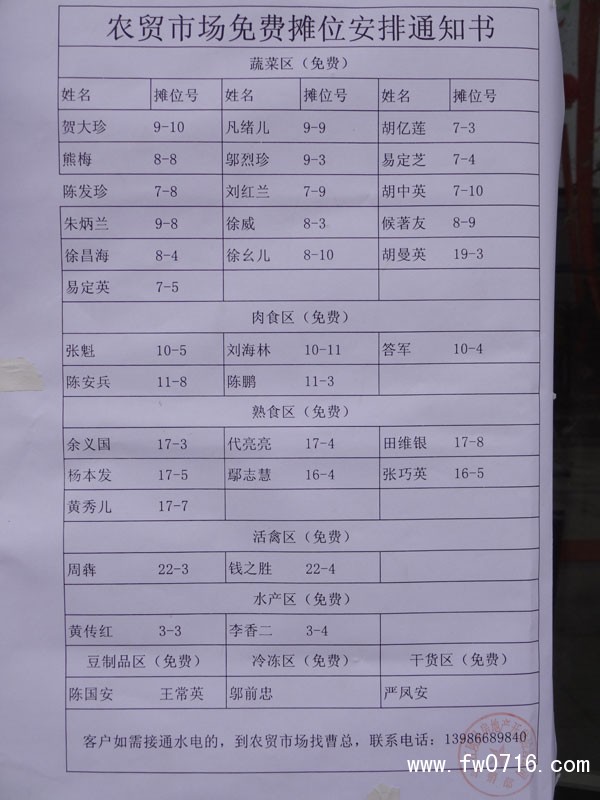 农贸市场免费摊位安排通知书
蔬菜区（免费）
姓名 摊位号 姓名 摊位号 姓名 摊位号
贺大珍 9-10 凡绪儿 9-9 胡亿莲 7-3
熊梅 8-8 邬烈珍 9-3 易定芝 7-4
陈发珍 7-8 刘红兰 7-9 胡中英 7-10
朱炳兰 9-8 徐威 8-3 候著友 8-9
徐昌海 8-4 徐幺儿 8-10 胡曼英 19-3
易定英 7-5
肉食区（免费）
张魁 10-5 刘海林 10-11 答军 10-4
陈安兵 11-8 陈鹏 11-3
熟食区（免费）
余义国 17-3 代亮亮 17-4 田维银 17-8
杨本发 17-5 鄢志慧 16-4 张巧英 16-5
黄秀儿 17-7
活禽区（免费）
周犇 22-3 钱之胜 22-4
水产区（免费）
黄传红 3-3 李香二 3-4
豆制品区（免费） 冷冻区（免费） 干货区（免费）
陈国安 王常英 邬前忠 严凤安
客户如需接通水电的，到农贸市场找曹总，联系电话：13986689840
www.fw0716.com